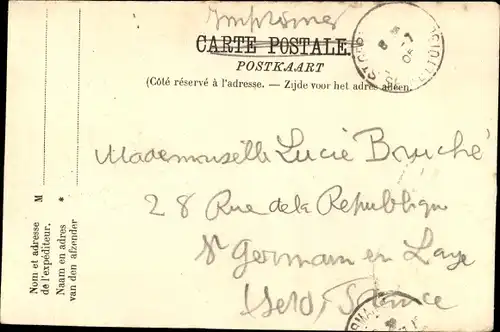 Imprimé
CARTE POSTALE.
POSTKAART
(Côté réservé à l'adresse. — Zijde voor het adres alleen.
Mademoiselle Lucie Bouché
28 Rue de la Republique
St Germain en Laye
France
Nom et adresse M
de l'expéditeur.
Naam en adres *
van den afzender